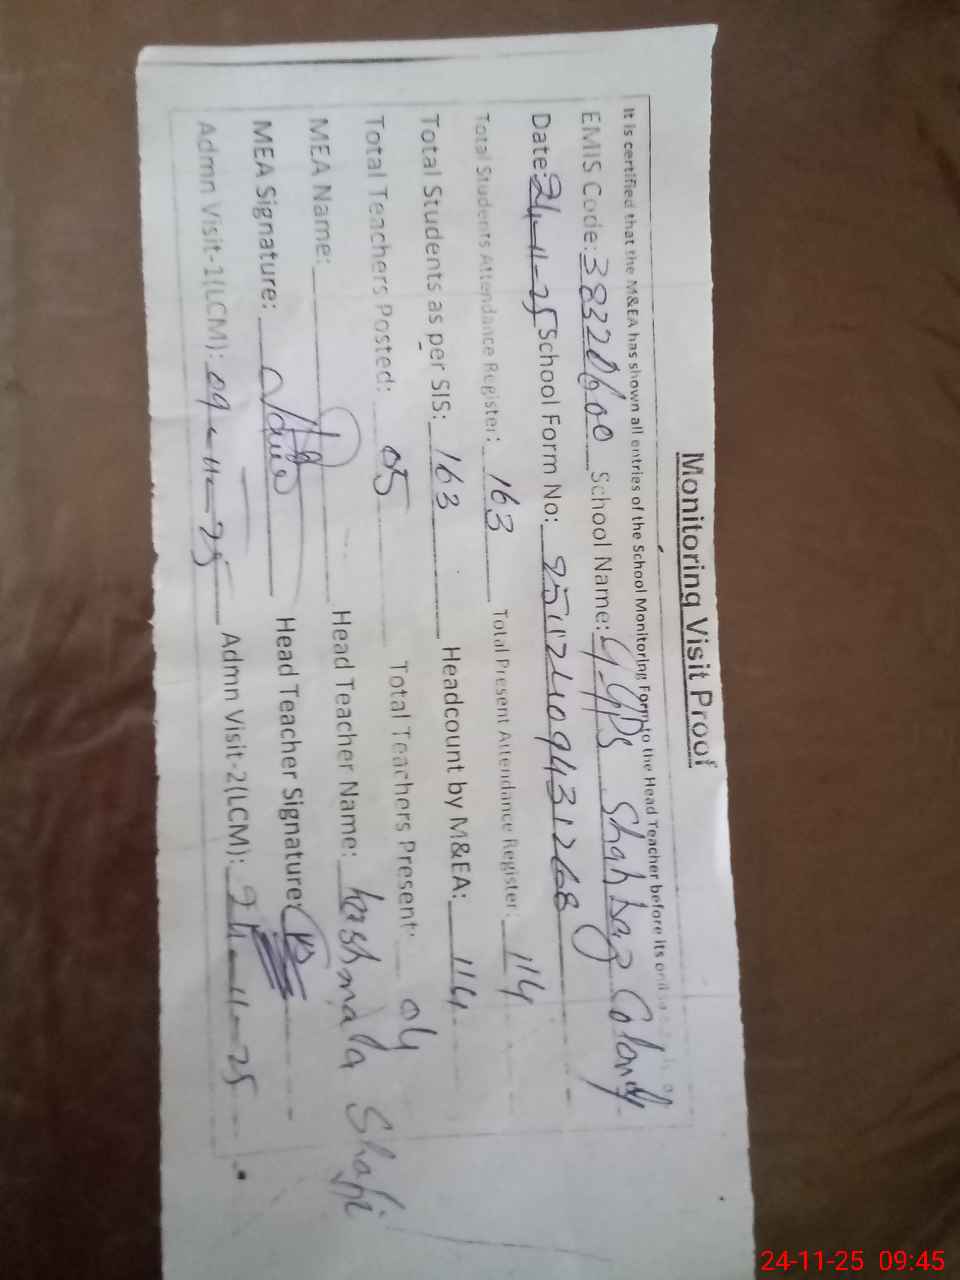 Monitoring Visit Proof
It is certified that the M&EA has shown all entries of the School Monitoring Form to the Head Teacher before its
EMIS Code: 38320600 School Name: G.GPS Shahbaz Colony
Date: 24-11-25 School Form No: 25112409431268
Total Students Attendance Register: 163 Total Present Attendance Register: 114
Total Students as per SIS: 163 Headcount by M&EA: 114
Total Teachers Posted: 05 Total Teachers Present: 04
MEA Name: Head Teacher Name: kashmala Shafi
MEA Signature: Head Teacher Signature:
Admn Visit-1(LCM): 09-11-25 Admn Visit-2(LCM): 24-11-25
24-11-25 09:45